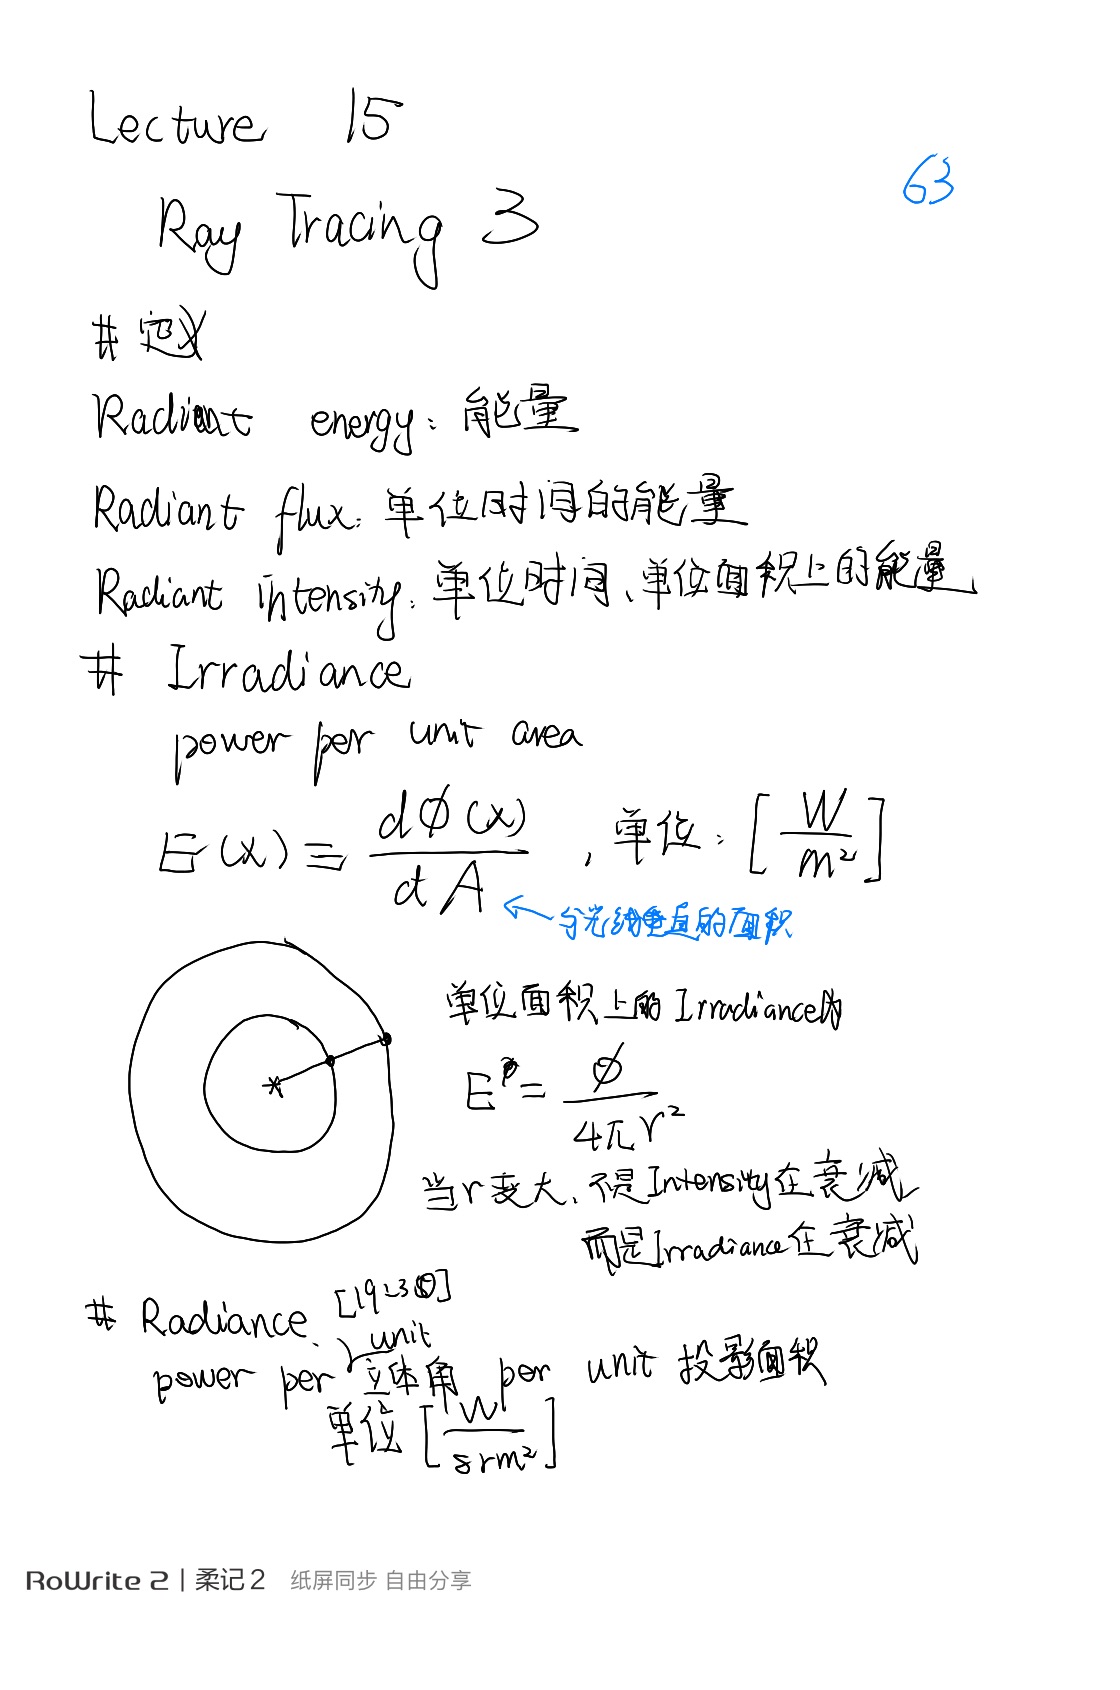 Lecture 15
63
Ray Tracing 3
# 定义
Radiant energy: 能量
Radiant flux: 单位时间的能量
Radiant intensity: 单位时间、单位面积上的能量
# Irradiance
power per unit area
E(x) ≡ dΦ(x) / dA , 单位: [W / m²]
← 与光线垂直的面积
单位面积上的 Irradiance为
E = Φ / 4πr²
当r变大、不是Intensity在衰减
而是Irradiance在衰减
# Radiance
power per unit 立体角 per unit 投影面积
单位 [W / sr m²]